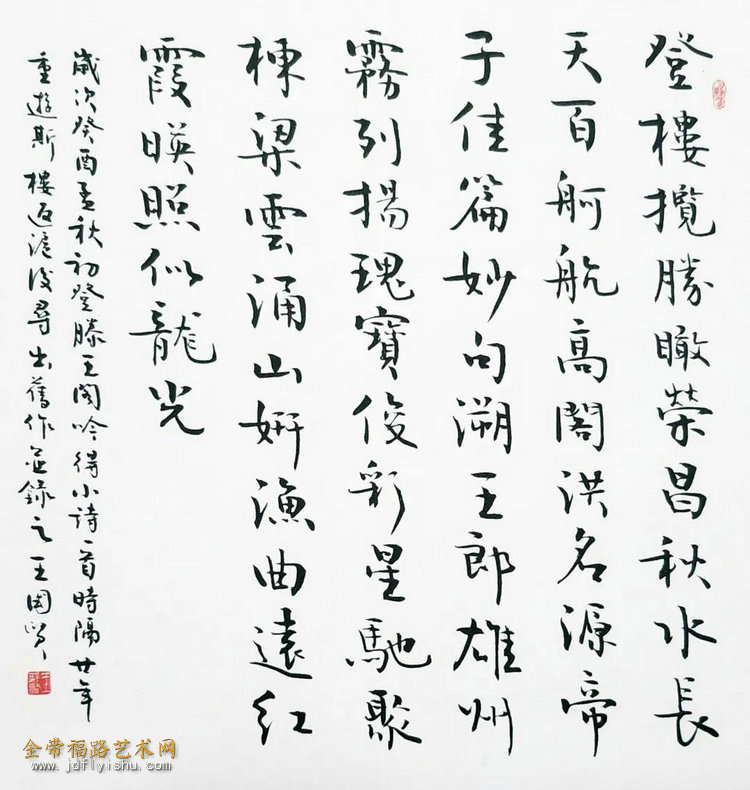 登樓攬勝瞰榮昌秋水長
天百舸航高閣洪名源帝
子佳篇妙句溯王郎雄州
霧列揚瑰寶俊彩星馳聚
棟梁雲涌山妍漁曲遠紅
霞暎照似龍光
歲次癸酉孟秋初登滕王閣吟得小詩一首時隔廿年
重遊斯樓返滬後尋出舊作並錄之王國賢
金带福路艺术网
www.jdflyishu.com